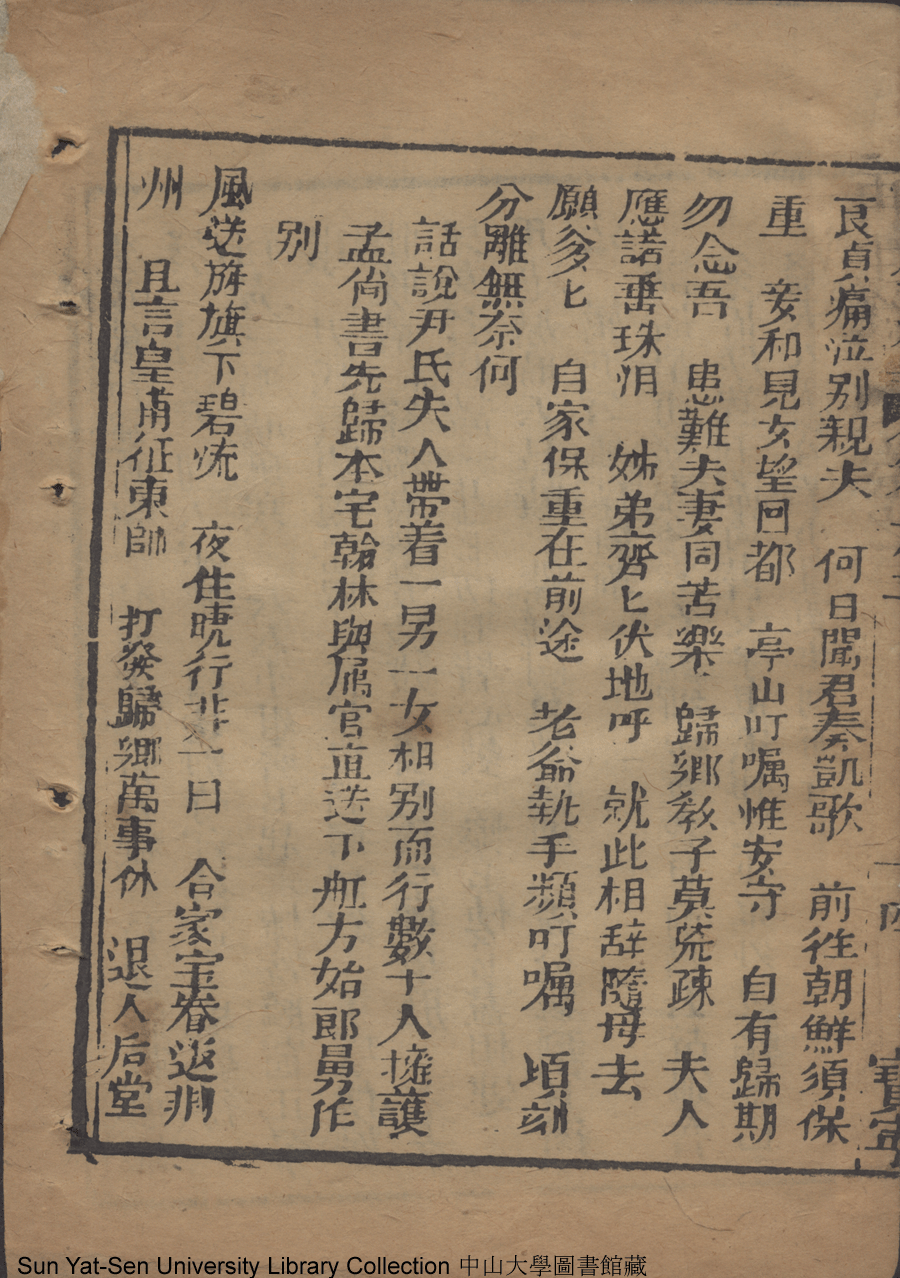 良貞痛泣別親夫　何日聞君奏凱歌　前往朝鮮須保
重　妾和見女望回都　亭山叮嘱惟安守　自有歸期
勿念吾　患難夫妻同苦樂　歸鄉教子莫荒疎　夫人
應諾垂珠泪　姊弟齊匕伏地呼　就此相辞隨母去
願爹匕　自家保重在前途　老爺執手頻叮嘱　頃刻
分離無奈何
話說尹氏失人帶着一男一女相别而行數十人擁護
孟尙書先歸本宅翰林與属官直送下舡方始郎舅作
别
風送旌旗下碧流　夜住曉行非一日　合家宝眷返湖
州　且言皇甫征東帥　打發歸鄉萬事休　退人后堂
Sun Yat-Sen University Library Collection 中山大學圖書館藏